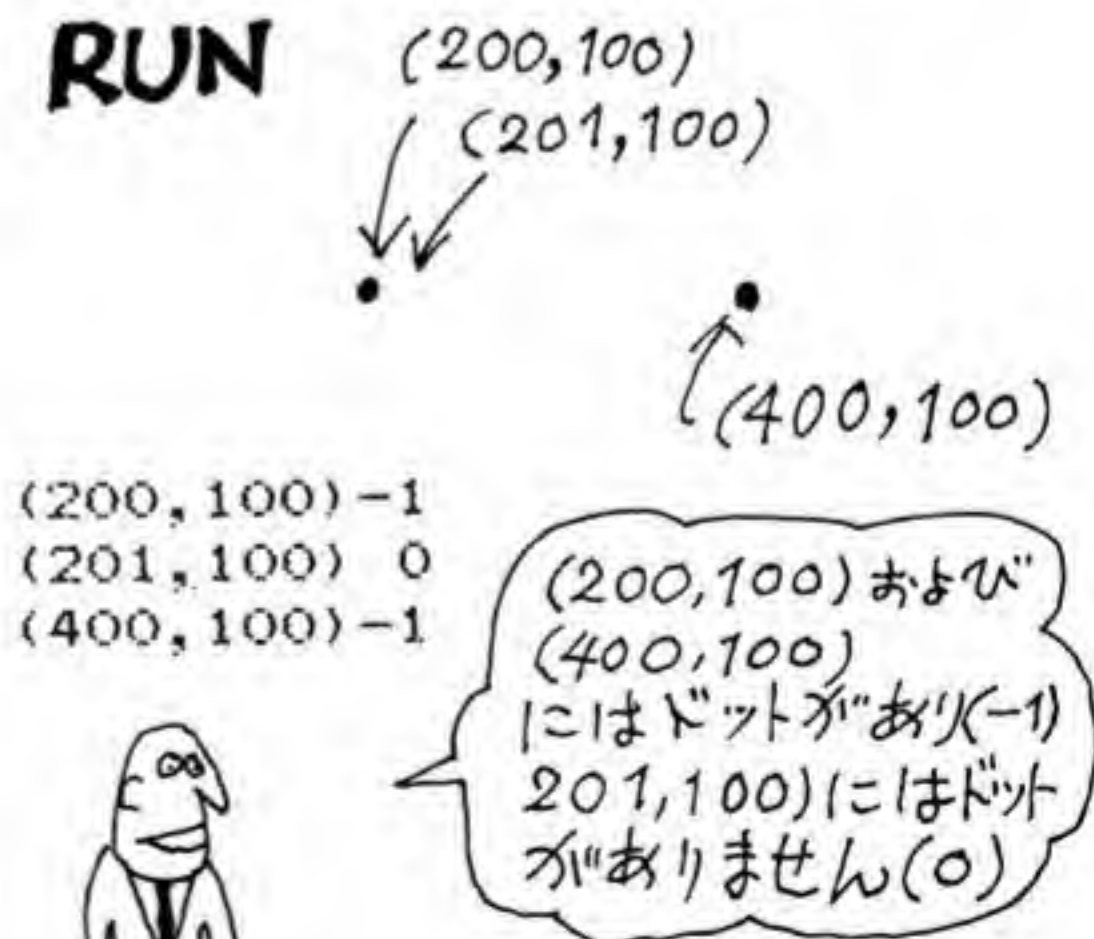 RUN
(200,100)
(201,100)
(400,100)
(200,100)-1
(201,100) 0
(400,100)-1
(200,100)および
(400,100)
にはドットがあり(-1)
201,100)にはドット
がありません(0)